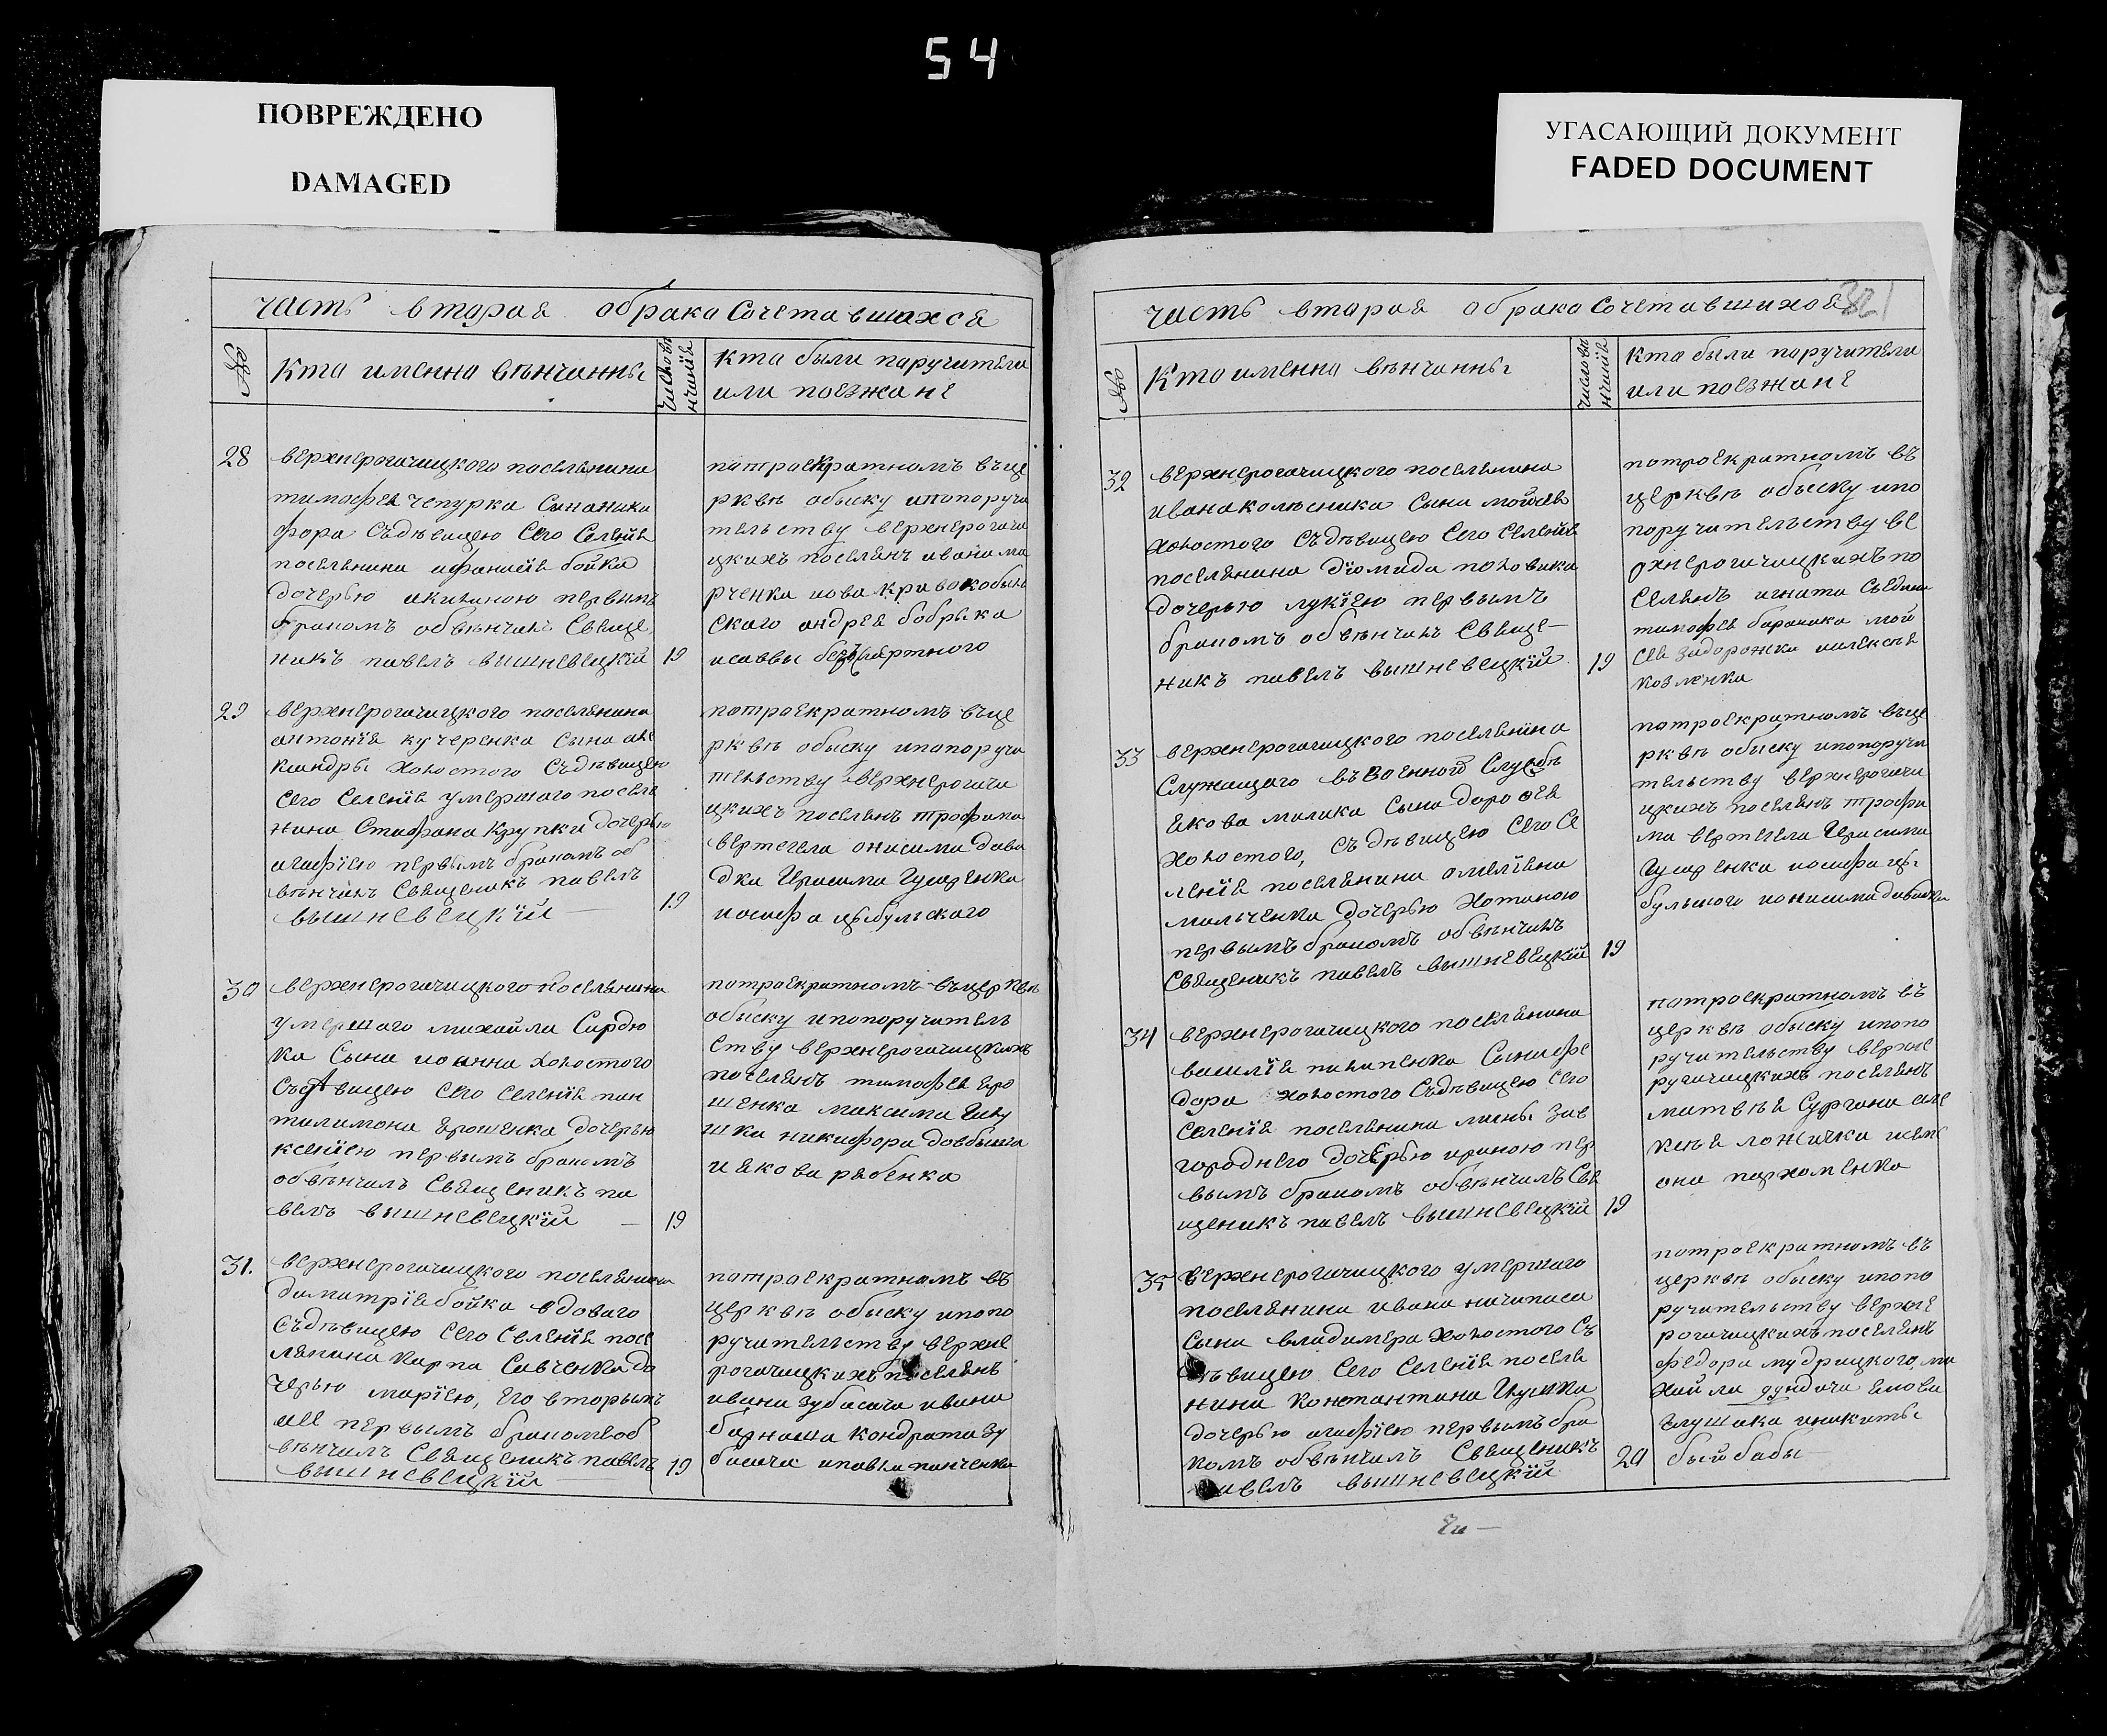 54
ПОВРЕЖДЕНО
DAMAGED
УГАСАЮЩИЙ ДОКУМЕНТ
FADED DOCUMENT
часть вторая обрака Сочетавшихся
№
Кто именно вѣнчанны
число вѣнчанія
кто были паручители
или поезжане
28
верхнерогачицкого поселянина
тимофея чепурка Сына ники
фора Съдѣвицею Сего Селенія
поселянина афанасія бойка
дочерью акилиною первымъ
бракомъ обвѣнчалъ Свяще
никъ павелъ вишневецкій
19
потроекратномъ въце
рквѣ обыску ипопоручи
тельству верхнерогачи
цкихъ поселянъ ивана ма
рченка иова кривокобыль
ского андрея бобрыка
исаввы
29
верхнерогачицкого поселянина
антонія кучеренка Сына але
ксандры холостого Съдѣвицею
Сего Селенія умершаго поселя
нина Стефана Крупки дочерью
агафіею первымъ бракомъ об
вѣнчалъ Священикъ павелъ
вышневецкій
19
потроекратномъ въце
рквѣ обыску ипопоручи
тельству верхнерогачи
цкихъ поселянъ трофима
вертегела онисима дави
дка Герасима Гусаренка
иосифа цыбульского
30
верхнерогачицкого поселянина
умершаго михайла Сердю
ка Сына иоанна холостого
Съдѣвицею Сего Селенія пан
тилимона ярошенка дочерью
ксеніею первымъ бракомъ
обвѣнчалъ Священикъ па
велъ вышневецкій
19
потроекратномъ въцерквѣ
обыску ипопоручитель
ству верхнерогачицкихъ
поселянъ тимофея яро
шенка максима Галу
шки никифора довбыша
иякова рябенка
31.
верхнерогачицкого поселянина
димитрія бойка вдоваго
Съдѣвицею Сего Селенія посе
лянина Карпа Савченка до
черью маріею, Его вторымъ
ая первымъ бракомъ об
вѣнчалъ Священикъ павелъ
вышневецкій
19
потроекратномъ въ
церквѣ обыску ипопо
ручительству верхне
рогачицкихъ поселянъ
ивана зубасача ивана
барнаша кондрата зу
басача ипавла панченка
часть вторая обрака Сочетавшихся
№
Кто именно вѣнчанны
число вѣнчанія
кто были паручители
или поезжане
32
верхнерогачицкого поселянина
ивана колѣсника Сына мойсея
холостого Съдѣвицею Сего Селенія
поселянина Діомида половика
дочерью лукіею первымъ
бракомъ обвѣнчалъ Свяще
никъ павелъ вышневецкій
19
потроекратномъ въ
церквѣ обыску ипо
поручительству ве
рхнерогачицкихъ по
селянъ игната
тимофея бараника мой
сея задорожка иалексѣя
козленка
33
верхнерогачицкого поселянина
Служащаго въ военной Службѣ
якова малика Сына дорофея
холостого, Съдѣвицею Сего Се
ленія поселянина омеліяна
мальченка дочерью
первымъ бракомъ обвѣнчалъ
Священикъ павелъ вышневецкій
19
потроекратномъ въце
рквѣ обыску ипопоручи
тельству верхнерогачи
цкихъ поселянъ трофи
ма вертегела Герасима
Гусаренка иосифа цы
бульского ионисима давидка
34
верхнерогачицкого поселянина
василія пилипенка Сына фе
дора холостого Съдѣвицею Сего
Селенія поселянина лукы заг
городнего дочерью ириною пер
вымъ бракомъ обвѣнчалъ Свя
щеникъ павелъ вышневецкій
19
потроекратномъ въ
церквѣ обыску ипопо
ручительству верхне
ругачицкихъ поселянъ
матвѣя Сургана але
ксѣя ложичка исеме
она пархоменка
35
верхнерогачицкого умершаго
поселянина ивана
Сына владимера холостого Съ
дѣвицею Сего Селенія поселя
нина Константина Глушка
дочерью агафіею первымъ бра
комъ обвѣнчалъ Священикъ
павелъ вышневецкій
20
потроекратномъ въ
церквѣ обыску ипопо
ручительству верхне
рогачицкихъ поселянъ
федора мудрицкого, ми
хайла дундича якова
глушака иникиты
быйбабы